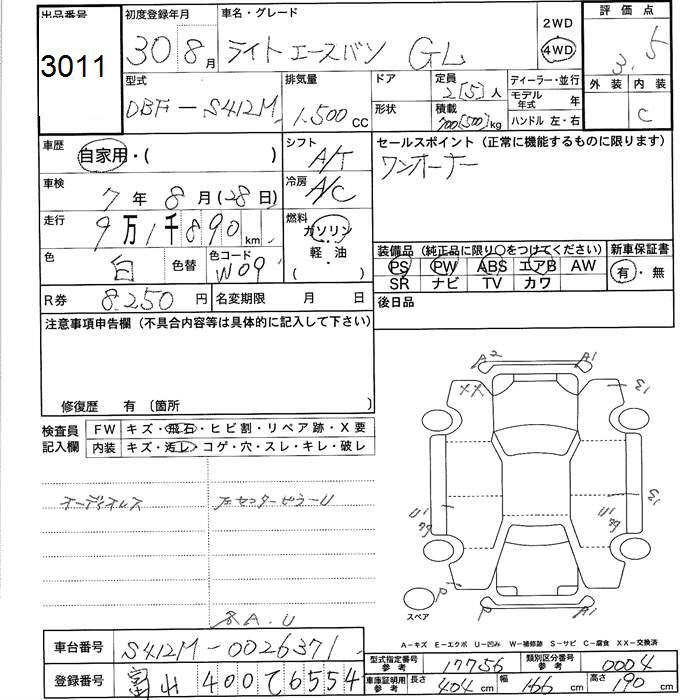 出品番号
3011
初度登録年月
30 8月
車名・グレード
ライトエースバン GL
2WD
4WD
評価点
3.5
外装 内装
C
型式
DBF-S412M
排気量
1,500 CC
ドア
形状
定員
2[5]人
積載
700[500]kg
ディーラー・並行
モデル年式 年
ハンドル 左・右
車歴
自家用・( )
シフト
A/T
セールスポイント(正常に機能するものに限ります)
ワンオーナー
車検
7年8月(28日)
冷房
A/C
走行
9万1千890km
燃料
ガソリン
軽・油
色
白
色替
色コード
W09
装備品(純正品に限り○をつけてください)
PS PW ABS エアB AW
SR ナビ TV カワ
新車保証書
有・無
R券
8,250円
名変期限 月 日
後日品
注意事項申告欄(不具合内容等は具体的に記入して下さい)
修復歴 有〔箇所 〕
検査員
記入欄
FW キズ・飛石・ヒビ割・リペア跡・X要
内装 キズ・汚レ・コゲ・穴・スレ・キレ・破レ
オーディオレス
A2 A1
XX
スペア
A-キズ E-エクボ U-凹み W-補修跡 S-サビ C-腐食 XX-交換済
車台番号
S412M-0026371
登録番号
富山 400て6554
型式指定番号
参考
17756
類別区分番号
参考
0004
車庫証明用
参考
長さ 404cm
幅 166cm
高さ 190cm